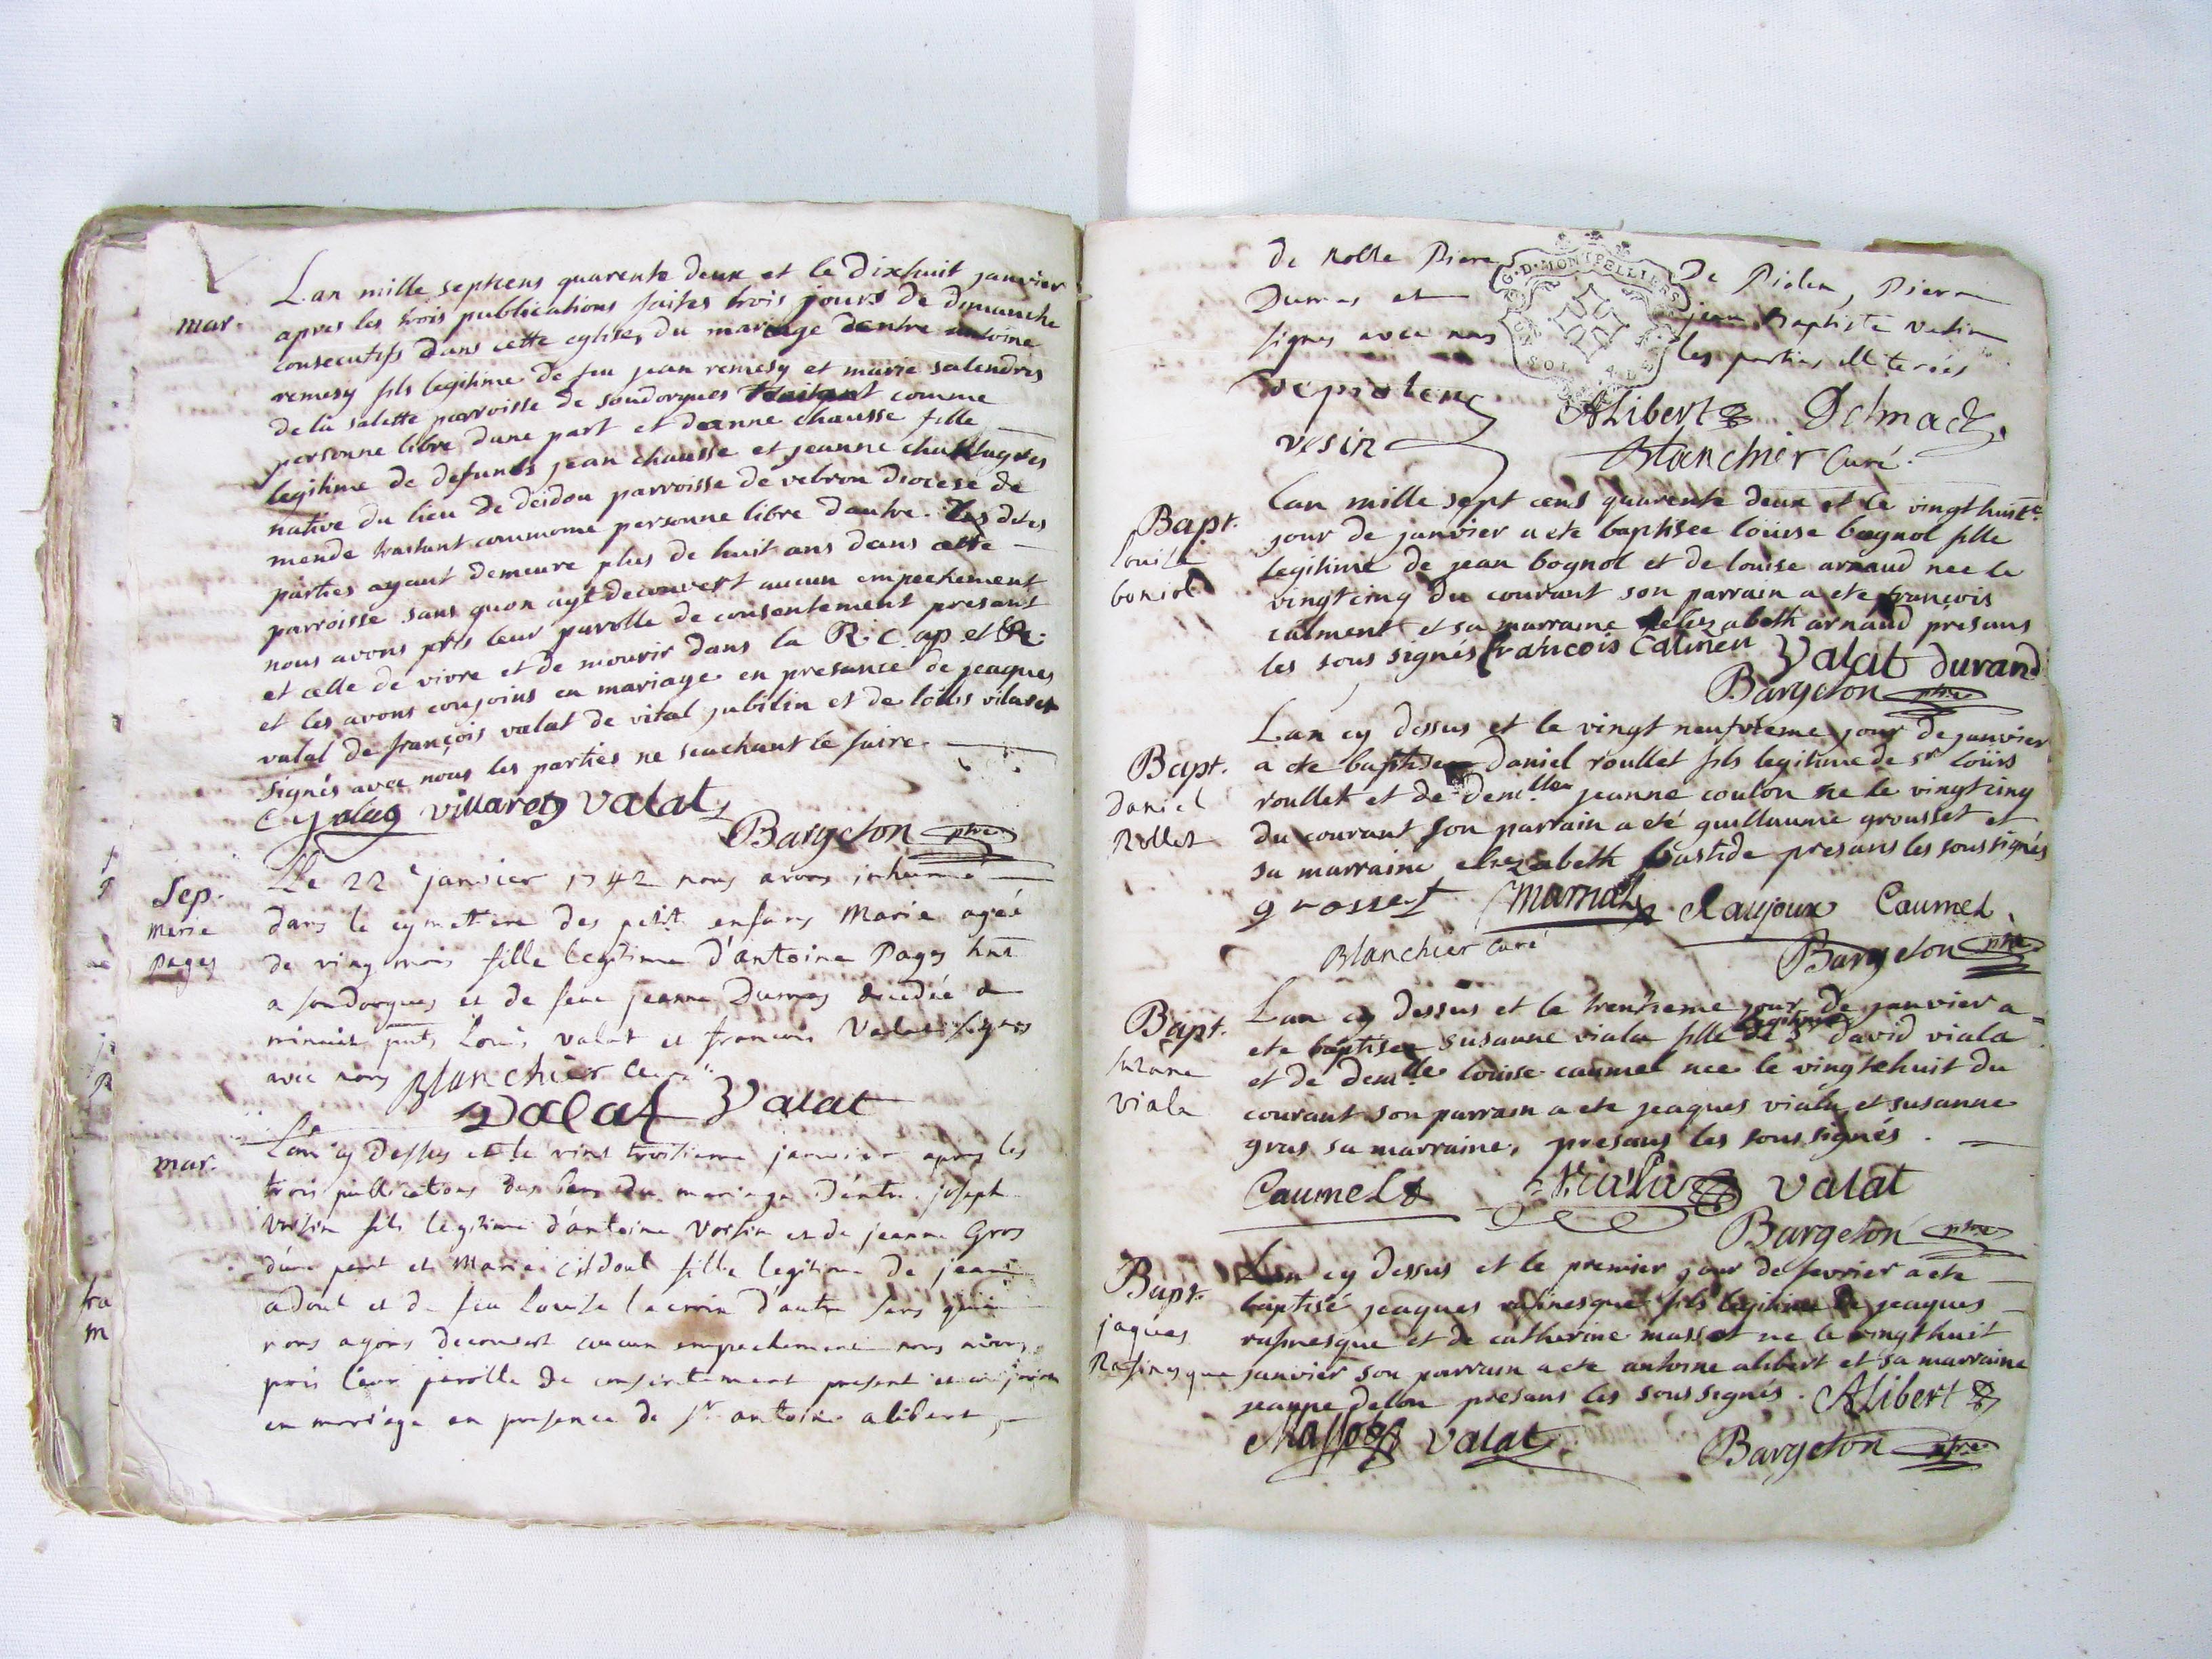 mar.
Lan mille septcens quarente deux et le dixhuit janvier
apres les trois publications faites trois jours de dimanche
consecutifs dans cette eglise, du mariage dentre antoine
remesy fils legitime de feu jean remesy et marie salendres
de la salette parroisse de soudorgues traitant comme
personne libre dune part et jeanne chausse fille
legitime de defunts jean chausse et jeanne
native du lieu de deidou parroisse de vebron diocese de
mende traitant commome personne libre dautre. Les dites
parties ayant demeure plus de huit ans dans cette
parroisse sans quon ayt decouvert aucun empechement
nous avons pris leur parolle de consentement present
et celle de vivre et de mourir dans la R. C. ap. et R.
et les avons conjoins en mariage en presance de jeaques
valat de françois valat de vital jubilin et de loüis vilaret
signés avec nous les parties ne scachant le faire.
villaret valat
Bargeton ptre
Sep.
Marie
pages
Le 22e janvier 1742 nous avons inhumé
dans le cymettiere des petit enfans Marie agée
de ving mois fille legitime d'antoine Pages hant
a soudorgues et de feue jeanne Dumas decedée a
minuit pnts Louis valat et francois Valat signés
avec nous Blanchier curé
Valat Valat
mar.
Lan cy dessus et le vint troisieme janvier apres les
trois publications des bans du mariage d'entre joseph
fils legitime d'antoine et de jeanne Gros
d'une part et Marie fille legitime de jean
adoul et de feu Louise d'autre sans que
nous ayons decouvert aucun empechement nous avons
pris leur parolle de consentement present et conjoins
en mariage en presence de sr antoine alibert
de noble Piere de Piolen, Piere
Dumas et jean Baptiste
signes avec nous les parties illiterées
G. D. MONTPELLIER
depiolenc ALibert Delmas
vesin Blanchier Curé.
Bapt.
Louise
Lan mille sept cens quarente deux et le vingthuite
jour de janvier a ete baptisee loüise bagnol fille
legitime de jean bognol et de louise arnaud nee le
vingtcinq du courant son parrain a ete françois
calment et sa marraine elizabeth arnaud presans
les sous signés francois Calmen Valat durand
Bargeton ptre
Bapt.
Daniel
Rollet
Lan cy dessus et le vingt neufvieme jour de janvier
a ete baptisee daniel roullet fils legitime de sr loüis
roullet et de demlle jeanne coulon ne le vingtcinq
du courant son parrain a eté guillaume grousset et
sa marraine elizabeth bastide presans les soussignés
grosset Laujoux Caumel
Blanchier curé Bargeton ptre
Bapt.
suzane
viala
Lan cy dessus et le trentieme jour de janvier a
ete baptisee susanne viala fille legitime de sr david viala
et de demlle louisse caumel nee le vingtehuit du
courant son parrain a ete jeaques viala et susanne
gras sa marraine, presans les sous signés.
Caumel Viala valat
Bargeton ptre
Bapt.
jaques
Rafinesque
Lan cy dessus et le premier jour de fevrier a ete
baptisé jeaques rafinesque fils legitime de jeaques
rafinesque et de catherine massot ne le vingthuit
janvier son parrain a ete antoine alibert et sa marraine
jeanne delon presans les sous signés. ALibert
Massot valat Bargeton ptre